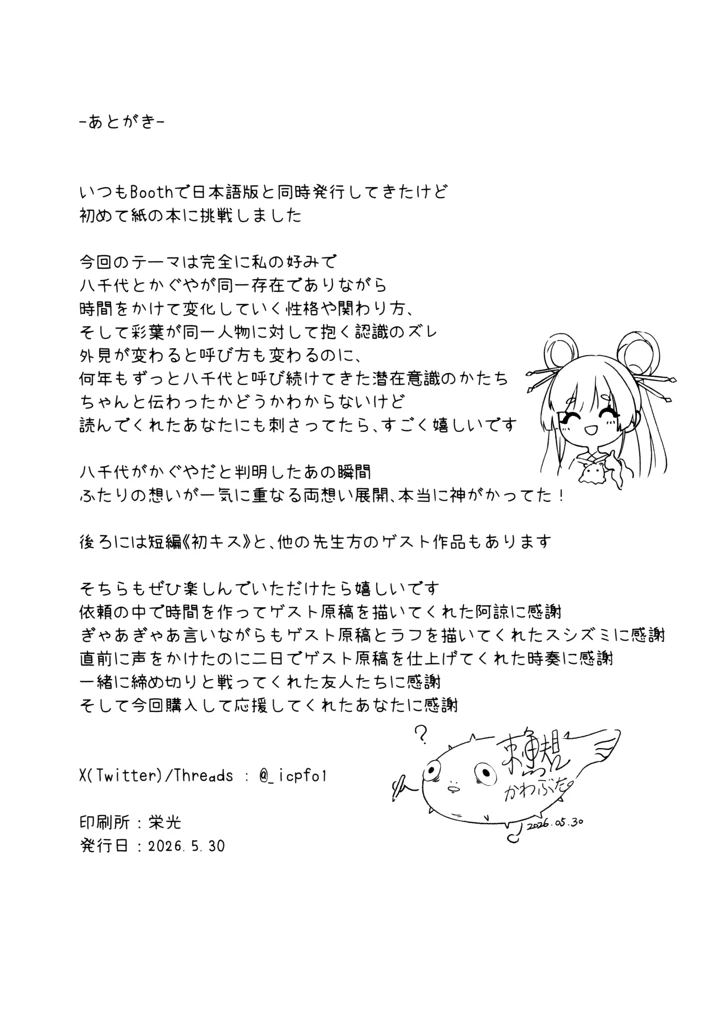 -あとがき-
いつもBoothで日本語版と同時発行してきたけど
初めて紙の本に挑戦しました
今回のテーマは完全に私の好みで
八千代とかぐやが同一存在でありながら
時間をかけて変化していく性格や関わり方、
そして彩葉が同一人物に対して抱く認識のズレ
外見が変わると呼び方も変わるのに、
何年もずっと八千代と呼び続けてきた潜在意識のかたち
ちゃんと伝わったかどうかわからないけど
読んでくれたあなたにも刺さってたら、すごく嬉しいです
八千代がかぐやだと判明したあの瞬間
ふたりの想いが一気に重なる両想い展開、本当に神がかってた！
後ろには短編《初キス》と、他の先生方のゲスト作品もあります
そちらもぜひ楽しんでいただけたら嬉しいです
依頼の中で時間を作ってゲスト原稿を描いてくれた阿諒に感謝
ぎゃあぎゃあ言いながらもゲスト原稿とラフを描いてくれたスシズミに感謝
直前に声をかけたのに二日でゲスト原稿を仕上げてくれた時奏に感謝
一緒に締め切りと戦ってくれた友人たちに感謝
そして今回購入して応援してくれたあなたに感謝
?
かわぶた。
2026.05.30
X(Twitter)/Threads : @_icpfo1
印刷所：栄光
発行日：2026.5.30